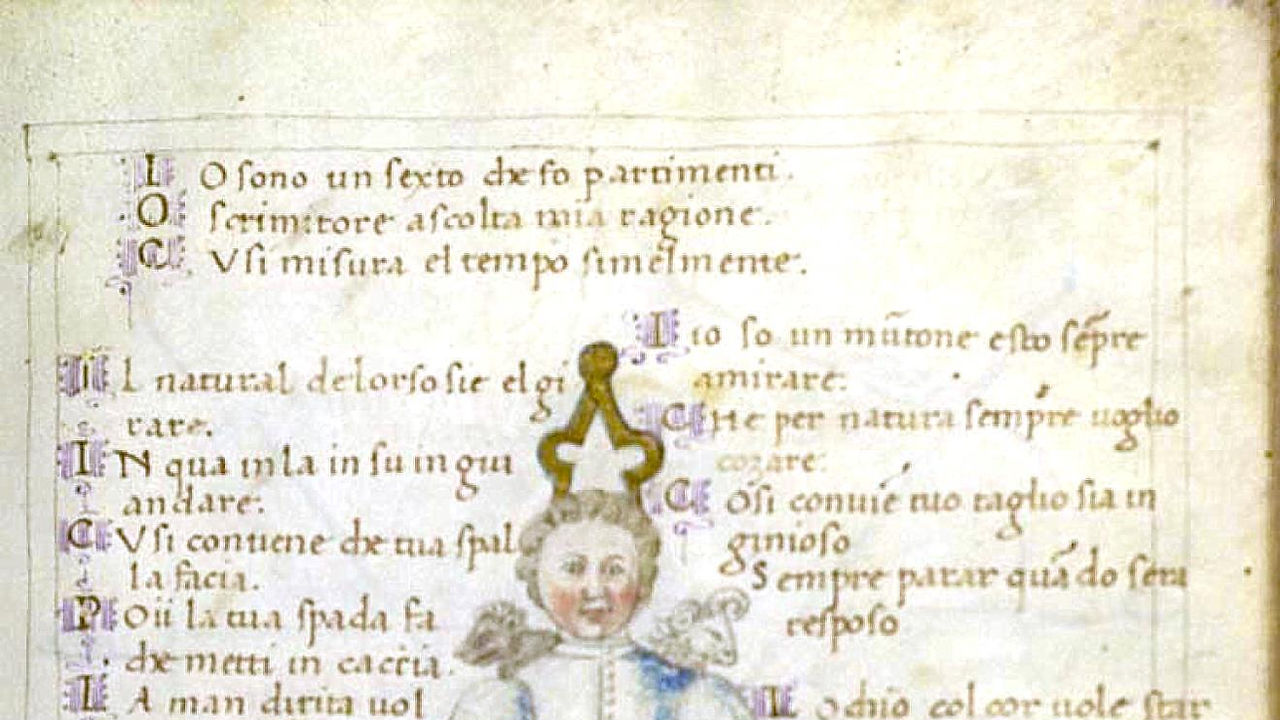 IO sono un sexto che fo partimenti.
O scrimitore ascolta mia ragione.
CUsi misura el tempo simelmente.
Il natural delorso sie el gi
rare.
IN qua in la in su in giu
andare:
CUsi contiene che tua spal
la facia.
POii la tua spada fa
che metti in caccia.
LA man dirita uol
Iio so un mūtone e sto sēpre
amirare:
CHe per natura sempre uoglio
cozare:
COsi conuiē tuo taglio sia in
ginioso
Sempre parar quādo sera
resposo
Lochio col cor uole star